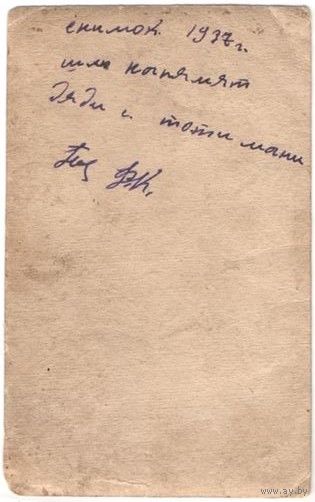 снимок 1937 г.
шлю напамят
дяди и тоти мани
Ф.К.
www.ay.by